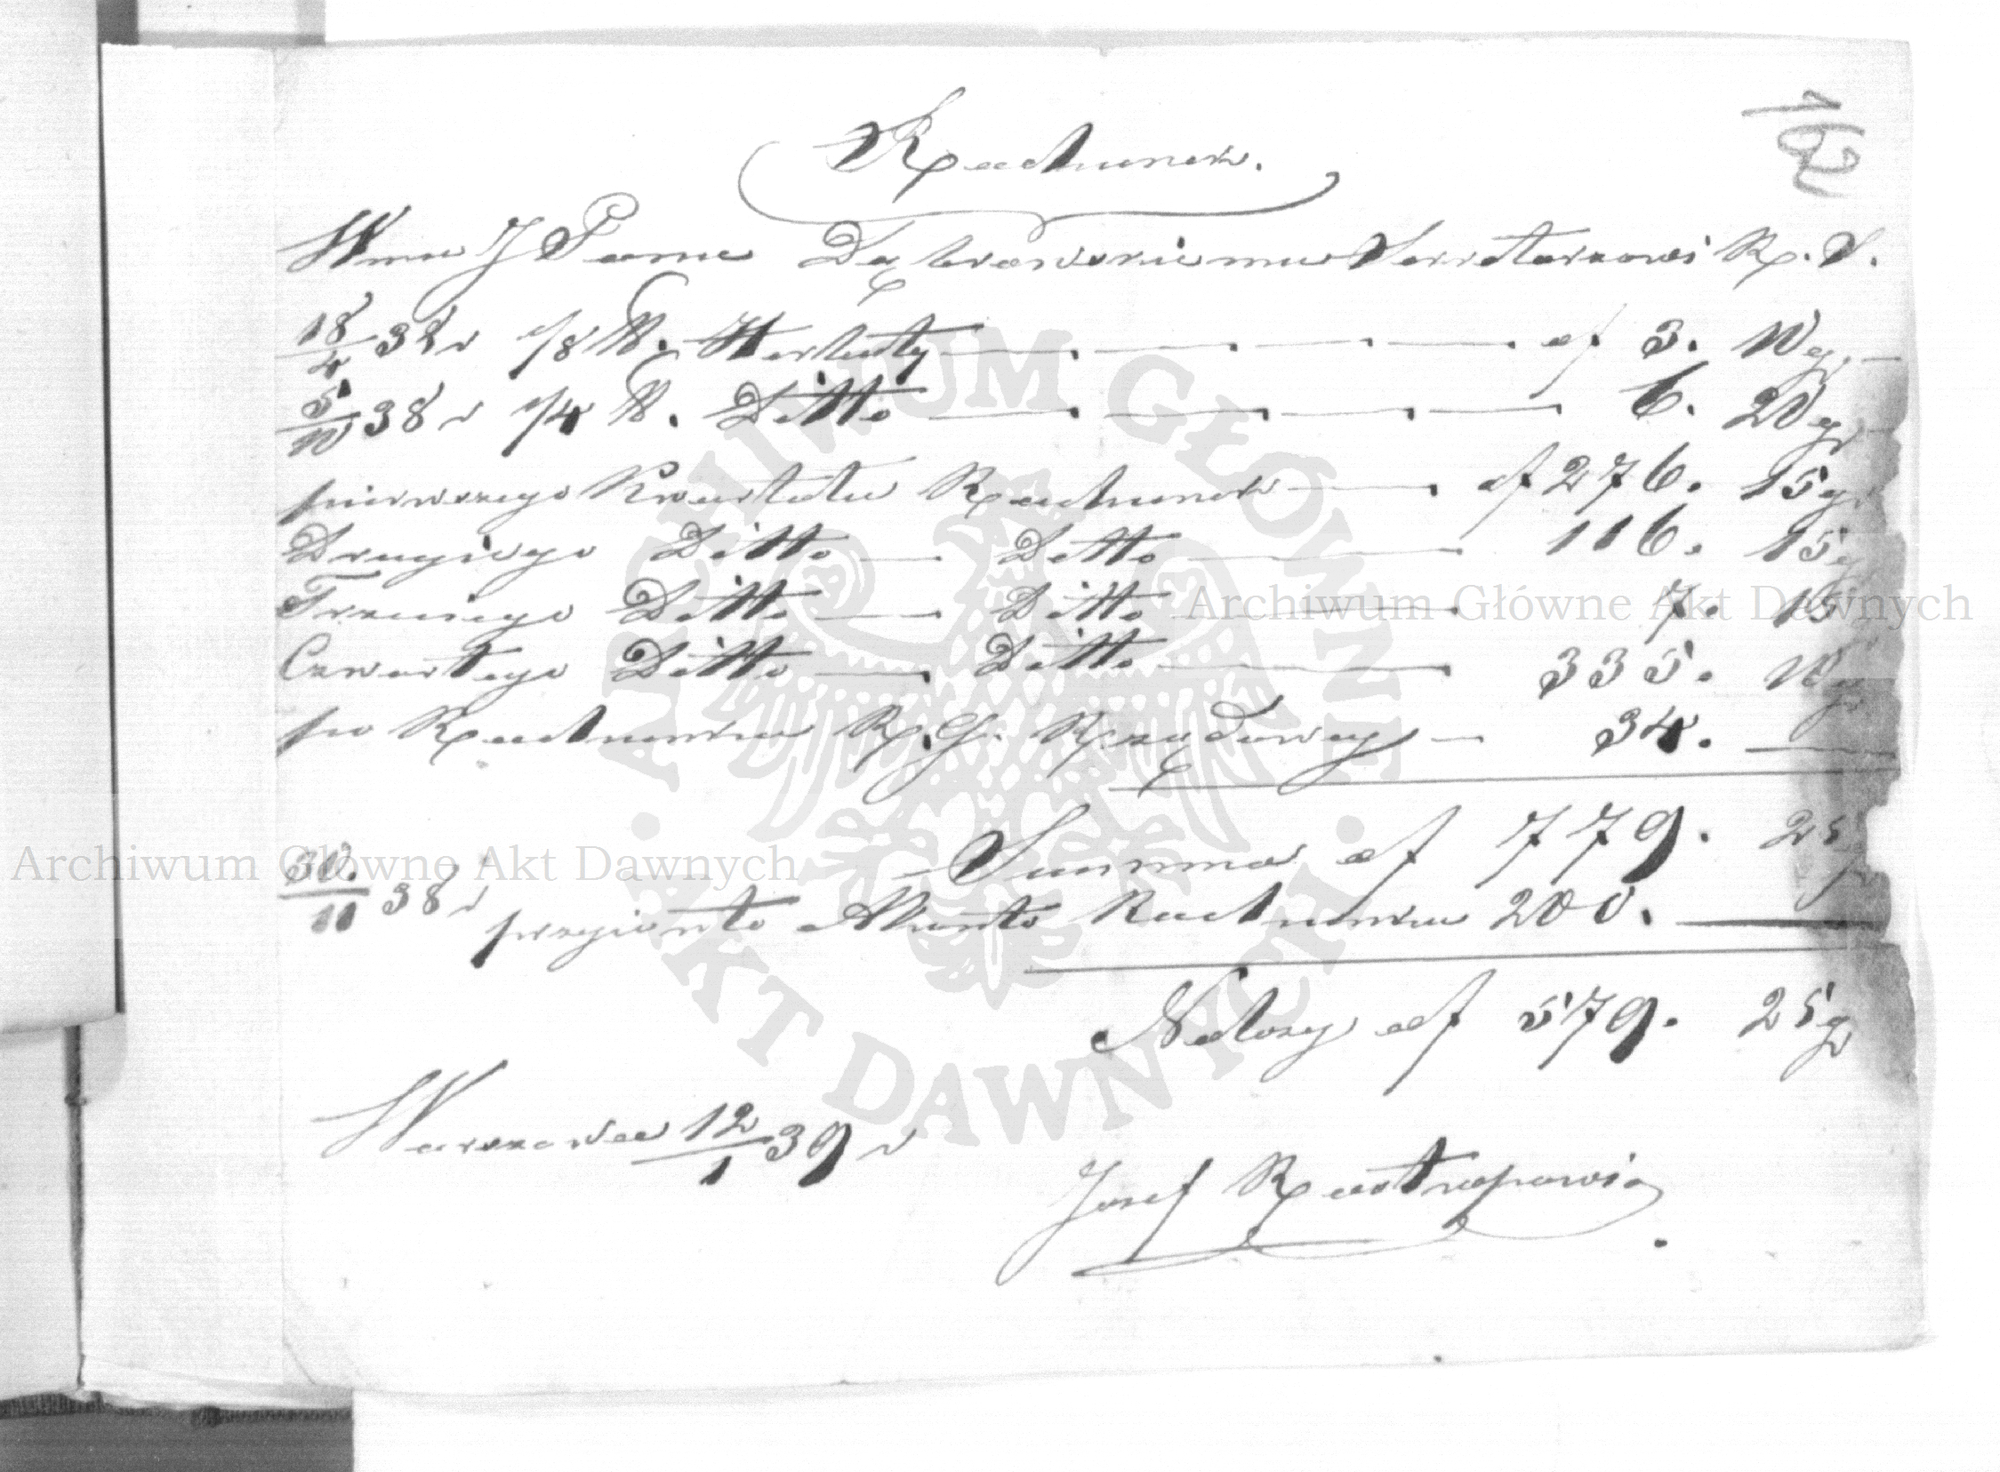 162
Rachunek.
Wmu J Panu Dąbrowskiemu Sekretarzowi R. S.
18/4 38 r 1/8 Herbaty zł 3. 10 gr
5/10 38 r 1/4 Ditto 6. 20 gr
pierwszego Kwartału Rachunek zł 276. 15 gr
Drugiego Ditto Ditto 116. 15 gr
Trzeciego Ditto Ditto 7. 15
Czwartego Ditto Ditto 335. 10 gr
po Rachunku R. G. Rządowey 34.
Summa zł 779. 25 gr
30/11 38 r przyięto Akonto Rachunku 200.
Należy zł 579. 25 gr
Warszawa 12/1 39 r
Josef
Archiwum Główne Akt Dawnych
Archiwum Główne Akt Dawnych
ARCHIWUM GŁÓWNE AKT DAWNYCH